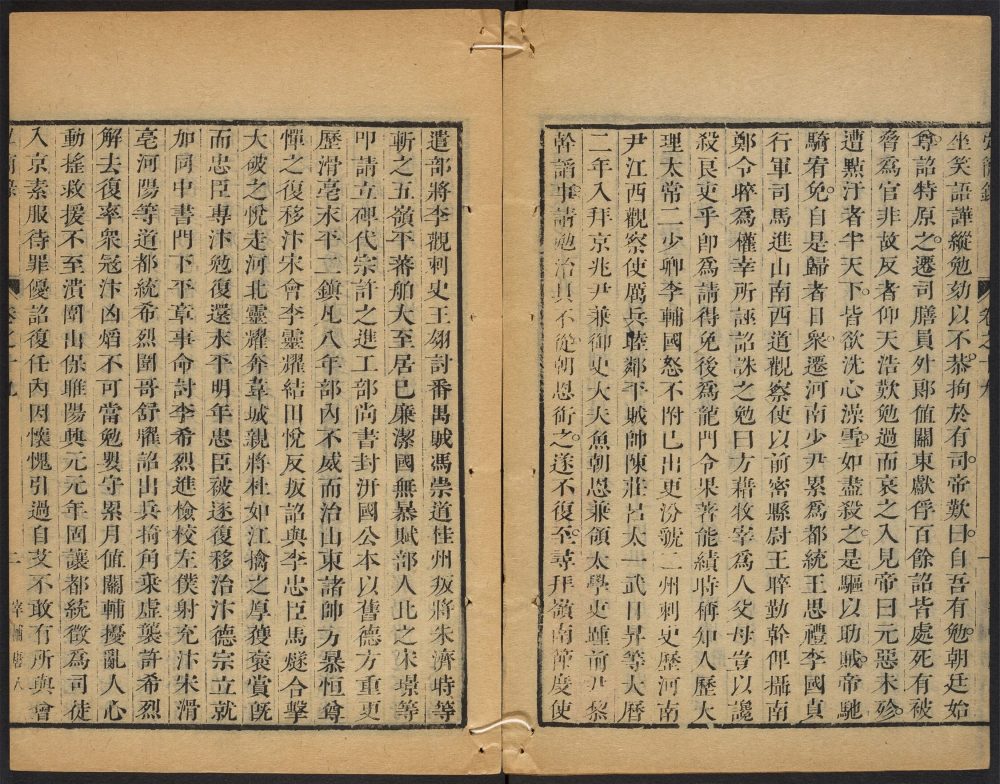 卷之十九
坐笑語譁縱勉劾以不恭拘於有司帝歎曰自吾有勉朝廷始
尊詔特原之遷司膳員外郎値關東獻俘百餘詔皆處死有被
脅爲官非故反者仰天浩歎勉過而哀之入見帝曰元惡未殄
遭點汙者半天下皆欲洗心澡雪如盡殺之是驅以助賊帝馳
騎宥免自是歸者日衆遷河南少尹累爲都統王思禮李國貞
行軍司馬進山南西道觀察使以前密縣尉王晬勤幹俾攝南
鄭令晬爲權幸所誣詔誅之勉曰方藉牧宰爲人父母豈以讒
殺良吏乎卽爲請得免後爲龍門令果著能績時稱知人歷大
理太常二少卿李輔國怒不附己出更汾虢二州刺史歷河南
尹江西觀察使厲兵睦鄰平賊帥陳莊呂太一武日昇等大曆
二年入拜京兆尹兼御史大夫魚朝恩兼領太學史踵前尹黎
幹謟事請勉治具不從朝恩銜之遂不復至尋拜嶺南節度使
遣部將李觀刺史王翃討番禺賊馮崇道桂州叛將朱濟時等
斬之五嶺平蕃舶大至居已廉潔國無暴賦部人北之宋璟等
叩請立碑代宗許之進工部尚書封汧國公本以舊德方重更
歷滑亳永平二鎭凡八年部內不威而治山東諸帥方暴恒尊
憚之復移汴宋會李靈耀結田悅反叛詔與李忠臣馬燧合擊
大破之悅走河北靈耀奔韋城親將杜如江擒之厚獲褒賞旣
而忠臣專汴勉復還永平明年忠臣被逐復移治汴德宗立就
加同中書門下平章事命討李希烈進檢校左僕射充汴宋滑
亳河陽等道都統希烈圍哥舒曜詔出兵掎角乘虛襲許希烈
解去復率衆寇汴凶熖不可當勉嬰守累月値關輔擾亂人心
動搖救援不至潰圍出保睢陽興元元年固讓都統徵爲司徒
入京素服待罪優詔復任內因懷愧引過自艾不敢有所與會
卷之十九 二 宰輔唐八